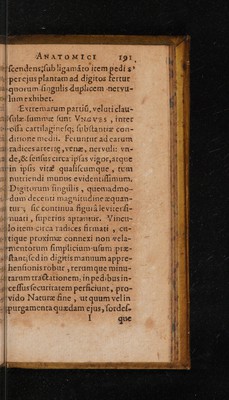 ANATOMICI 191
scendens; sub ligamẽto item pedi s
per ejus plantam ad digitos fertur
quorum singulis duplicem nervu-
lum exhibet.
Extremarum partiũ, veluti clau-
sulæ summæ sunt VNGVES, inter
ossa cartilaginesq; substantiæ con-
ditione medii. Feruntur ad earum
radices arteriæ, venæ, nervuli: vn-
de, & sensus circa ipsas vigor, atque
in ipsis vitæ qualiscumque, tum
nutriendi munus evidentissimum.
Digitorum singulis, quemadmo-
dum decenti magnitudine æquan-
tur; sic continua figurâ leviter si-
nuati, superius aptantur. Vincu-
lo item circa radices firmati, cu-
tique proximæ connexi non vela-
mentorum simplicium usum præ-
stant; sed in digitis manuum appre-
hensionis robur, rerumque minu-
tarum tractationem, in pedibus in-
cessus securitatem perficiunt, pro-
vido Naturæ fine, ut quum vel in
purgamenta quædam ejus, sordes-
I que